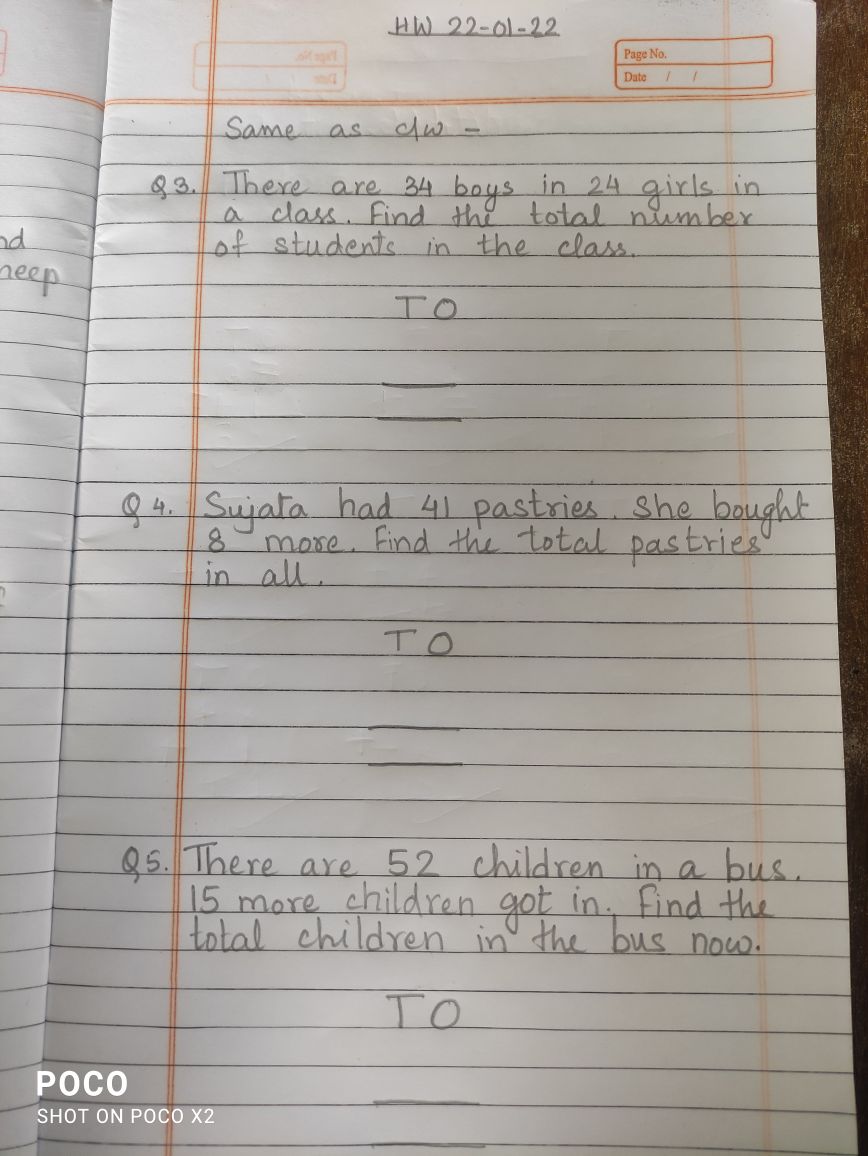 HW 22-01-22
Page No.
Date / /
Same as c/w -
Q3. There are 34 boys in 24 girls in
a class. Find the total number
of students in the class.
T O
Q4. Sujata had 41 pastries. She bought
8 more. Find the total pastries
in all.
T O
Q5. There are 52 children in a bus.
15 more children got in. Find the
total children in the bus now.
T O
POCO
SHOT ON POCO X2